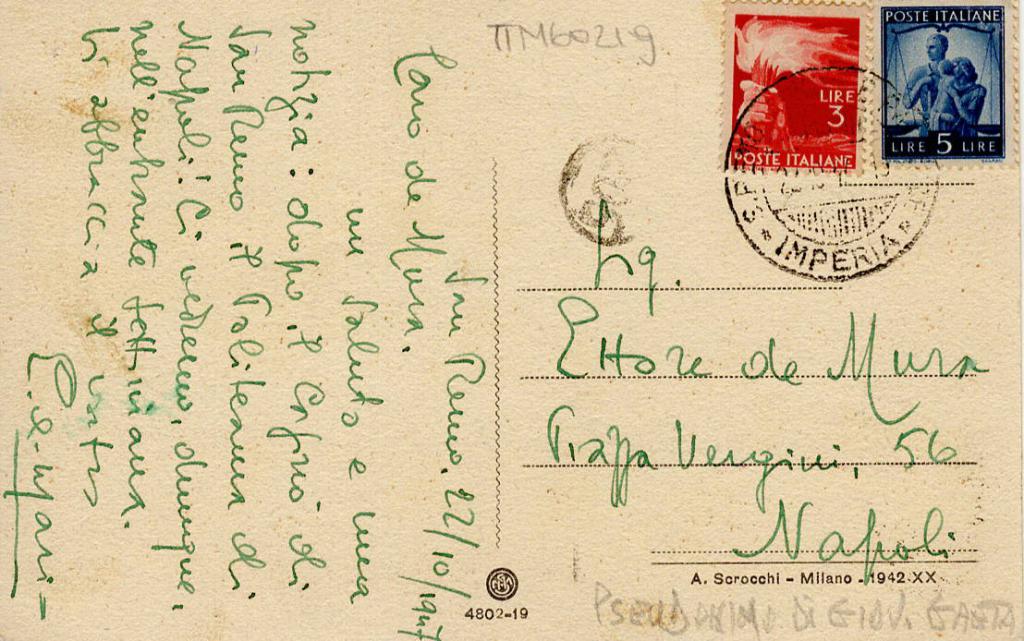 TTM60219
POSTE ITALIANE
LIRE
3
POSTE ITALIANE
LIRE 5 LIRE
IMPERIA
San Remo, 22/10/1947
Caro de Mura.
un saluto e una
notizia: dopo il Casinò di
San Remo il Politeama di
Napoli! Ci vedremo, dunque,
nell'entrante settimana.
Ti abbraccia il vostro
Sig.
Ettore de Mura
Piazza Vergini, 56
Napoli
A. Scrocchi - Milano - 1942-XX
4802-19
PSEUDONIMO DI GIOV. GAETA